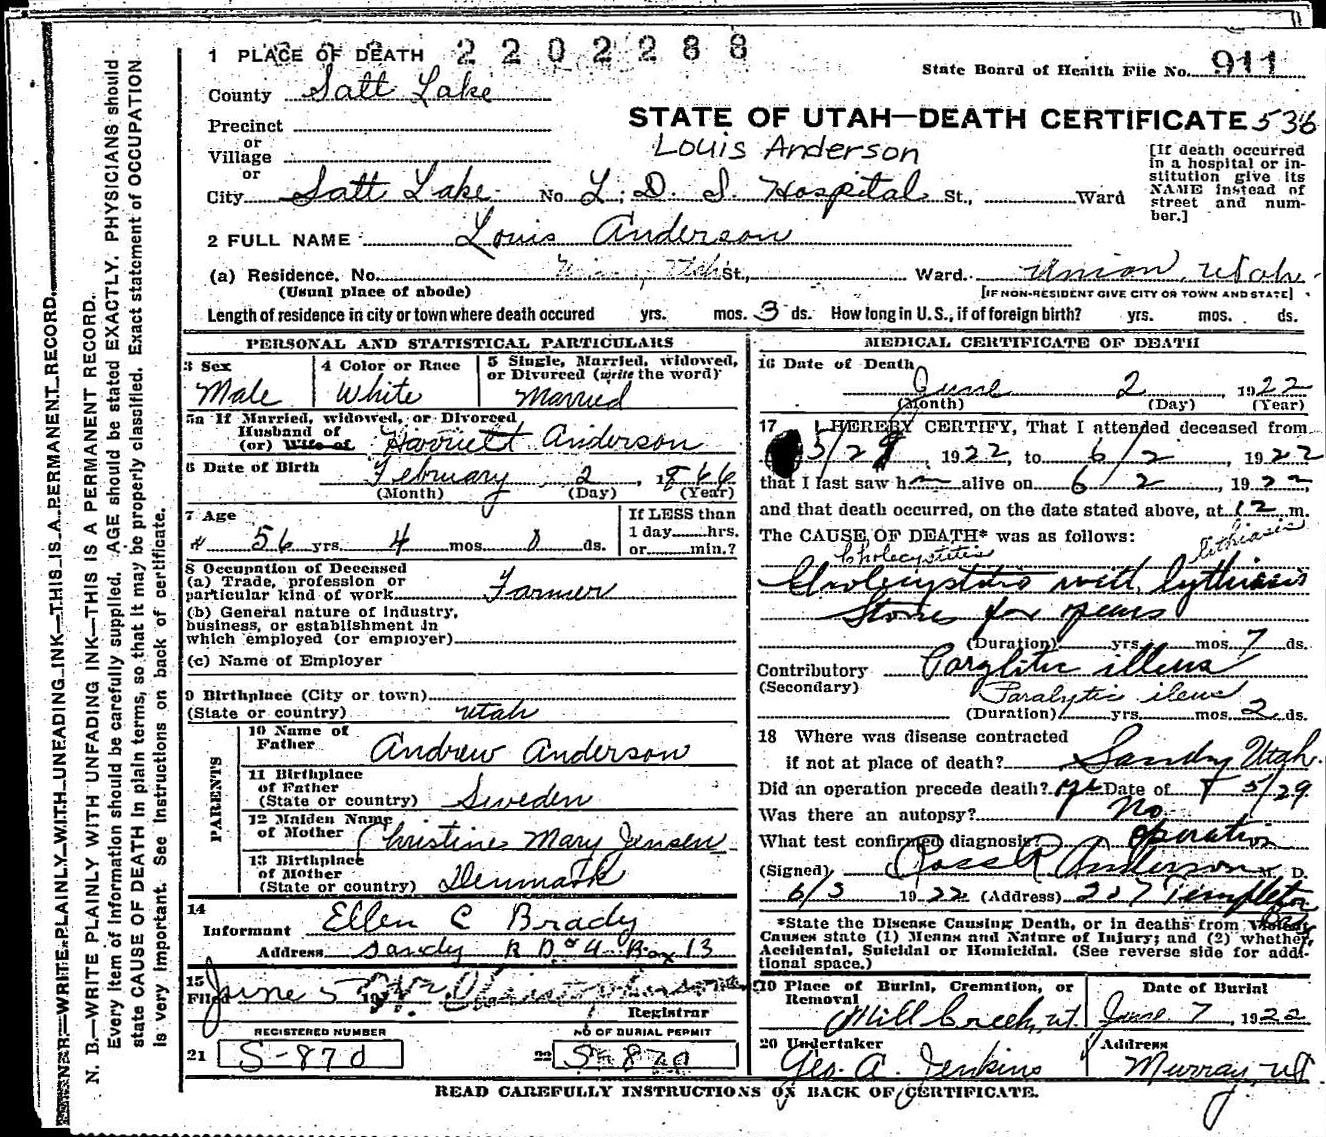 2202288
1 PLACE OF DEATH
State Board of Health File No. 911
County Salt Lake
STATE OF UTAH—DEATH CERTIFICATE 536
Precinct
or
Village
or
Louis Anderson
[If death occurred in a hospital or in-
stitution give its
NAME instead of
street and num-
ber.]
City Salt Lake No. L. D. S. Hospital St., Ward
2 FULL NAME Louis Anderson
(a) Residence. No. St., Ward. Union, Utah
(Usual place of abode) [IF NON-RESIDENT GIVE CITY OR TOWN AND STATE]
Length of residence in city or town where death occured yrs. mos. 3 ds. How long in U.S., if of foreign birth? yrs. mos. ds.
PERSONAL AND STATISTICAL PARTICULARS
3 Sex
Male
4 Color or Race
White
5 Single, Married, widowed,
or Divorced (write the word)
Married
5a If Married, widowed, or Divorced
Husband of
(or) Wife of Harriett Anderson
6 Date of Birth February 2, 1866
(Month) (Day) (Year)
7 Age
56 yrs. 4 mos 0 ds.
If LESS than
1 day hrs.
or min.?
8 Occupation of Deceased
(a) Trade, profession or
particular kind of work Farmer
(b) General nature of industry,
business, or establishment in
which employed (or employer)
(c) Name of Employer
9 Birthplace (City or town)
(State or country) Utah
PARENTS
10 Name of
Father Andrew Anderson
11 Birthplace
of Father
(State or country) Sweden
12 Maiden Name
of Mother Christine Mary Jensen
13 Birthplace
of Mother
(State or country) Denmark
14
Informant Ellen C Brady
Address Sandy R D #4 Box 13
15
Filed June 5 19
Registrar
REGISTERED NUMBER
21 S-870
NO OF BURIAL PERMIT
22 S-870
MEDICAL CERTIFICATE OF DEATH
16 Date of Death
June 2 1922
(Month) (Day) (Year)
17 I HEREBY CERTIFY, That I attended deceased from
5/29, 1922, to 6/2, 1922
that I last saw h alive on 6/2, 1922,
and that death occurred, on the date stated above, at 12 m.
The CAUSE OF DEATH* was as follows:
Cholecystitis lithiasis
Cholecystitis with lythiasis
Stones for years
(Duration) yrs. mos. 7 ds.
Contributory Paralitic illeus
(Secondary) Paralytic ileus
(Duration) yrs. mos. 2 ds.
18 Where was disease contracted
if not at place of death? Sandy Utah.
Did an operation precede death? yes Date of 5/29
Was there an autopsy? No
What test confirmed diagnosis? operation
(Signed) Ross Anderson M. D.
6/3 1922 (Address) 227 Templeton
Bldg
*State the Disease Causing Death, or in deaths from Violent
Causes state (1) Means and Nature of Injury; and (2) whether
Accidental, Suicidal or Homicidal. (See reverse side for addi-
tional space.)
19 Place of Burial, Cremation, or
Removal
Mill Creek, ut.
Date of Burial
June 7, 1922
20 Undertaker
Geo. A. Jenkins
Address
Murray, Ut
READ CAREFULLY INSTRUCTIONS ON BACK OF CERTIFICATE.
WRITE PLAINLY WITH UNFADING INK—THIS IS A PERMANENT RECORD.
N. B.—WRITE PLAINLY WITH UNFADING INK—THIS IS A PERMANENT RECORD.
Every item of information should be carefully supplied. AGE should be stated EXACTLY. PHYSICIANS should
state CAUSE OF DEATH in plain terms, so that it may be properly classified. Exact statement of OCCUPATION
is very important. See instructions on back of certificate.